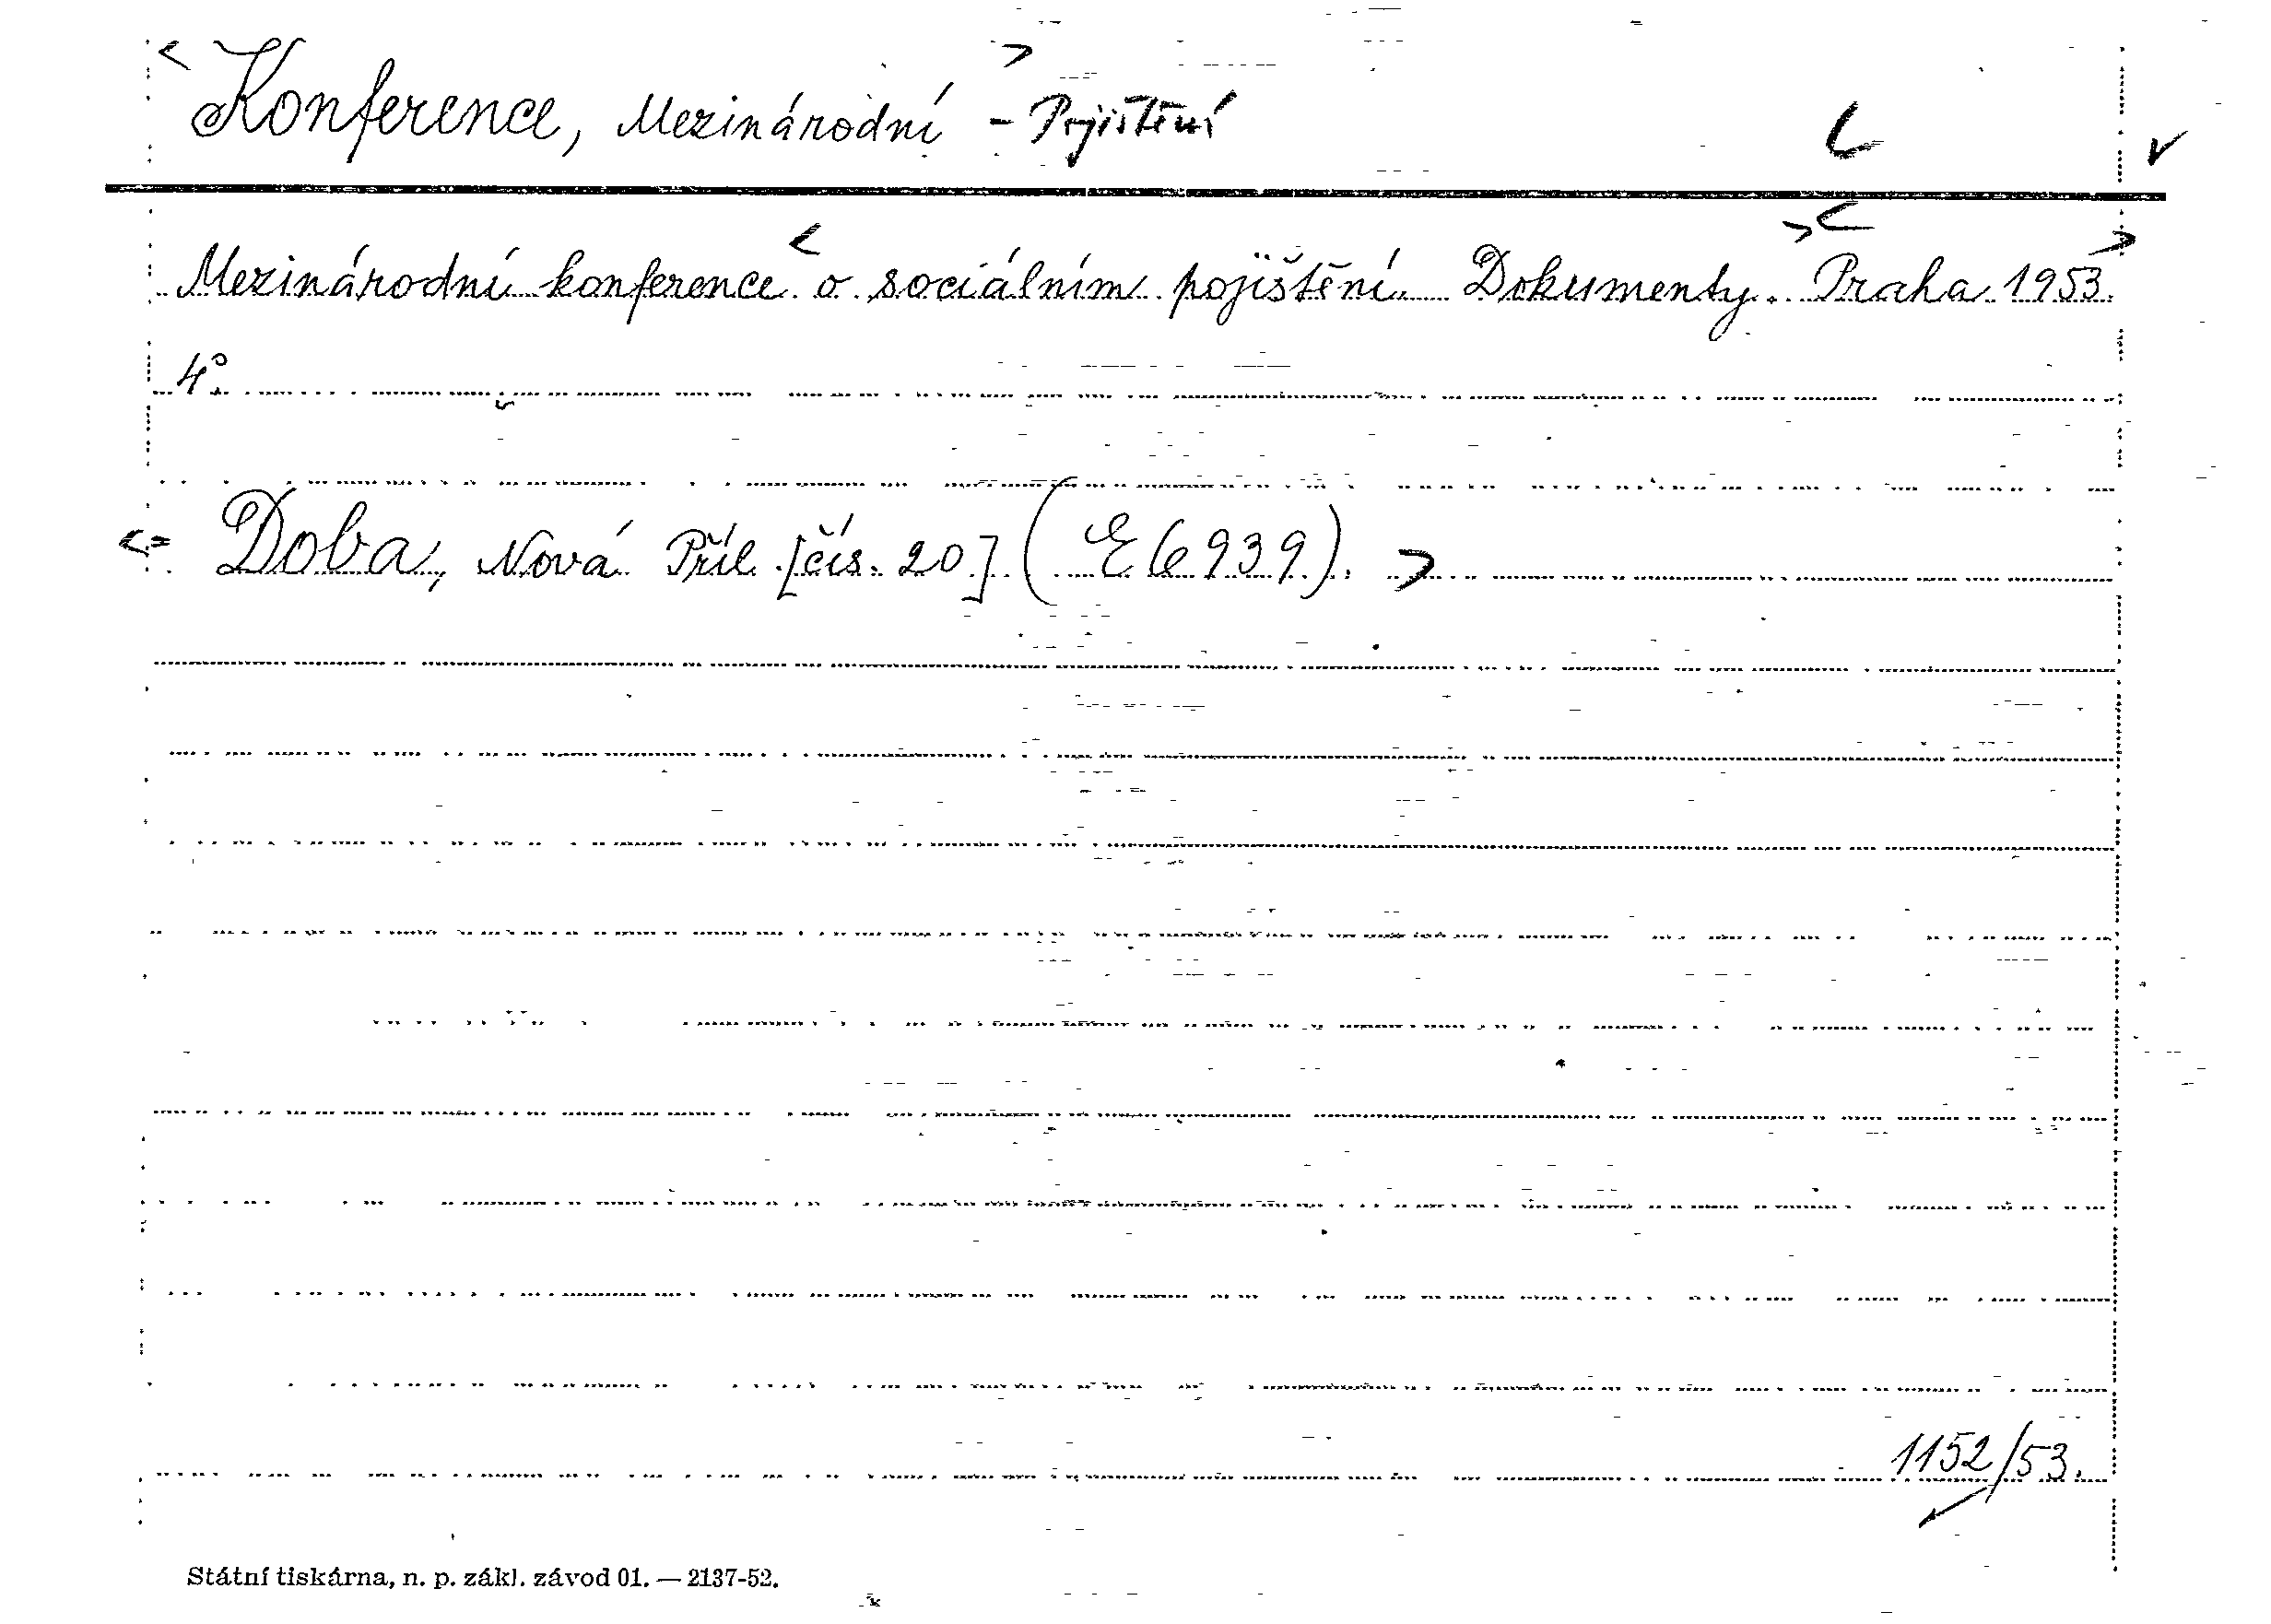 Konference, Mezinárodní - Pojištění
Mezinárodní konference o sociálním pojištění. Dokumenty. Praha 1953.
4°.
Doba, Nová Příl. [čís. 20] (E 6939).
1152/53.
Státní tiskárna, n. p. zákl. závod 01. — 2137-52.